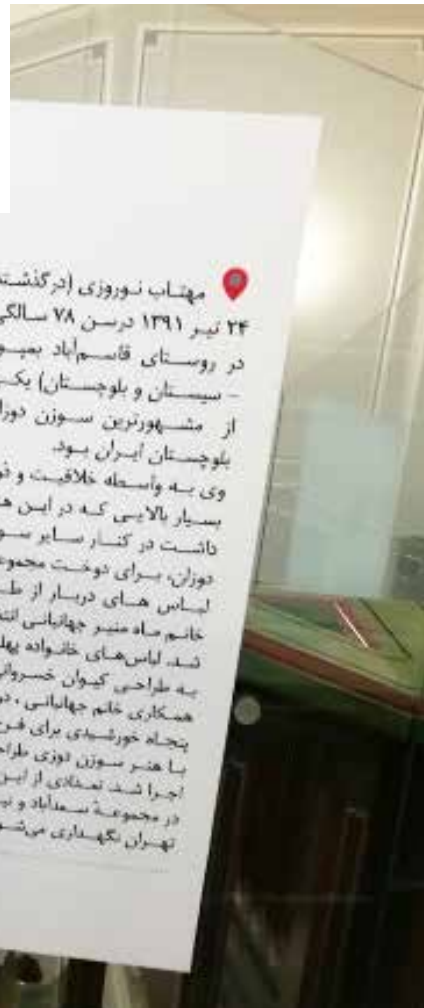 مهتاب نوروزی (درگذشته
۲۴ تیر ۱۳۹۱ درسن ۷۸ سالگی
در روستای قاسم‌آباد بمپو
- سیستان و بلوچستان) یک
از مشهورترین سوزن دورا
بلوچستان ایران بود.
وی به واسطه خلاقیت و ذو
بسیار بالایی که در این ه
داشت در کنار سایر سو
دوزان، برای دوخت مجموع
لباس های دربار از ط
خانم ماه منیر جهانبانی انت
شد. لباس‌های خانواده پهل
به طراحی کیوان خسروانی
همکاری خانم جهانبانی ، در
پنجاه خورشیدی برای فر
با هنر سوزن دوزی طراح
اجرا شد. تعدادی از این
در مجموعهٔ سعدآباد و نی
تهران نگهداری می‌شو